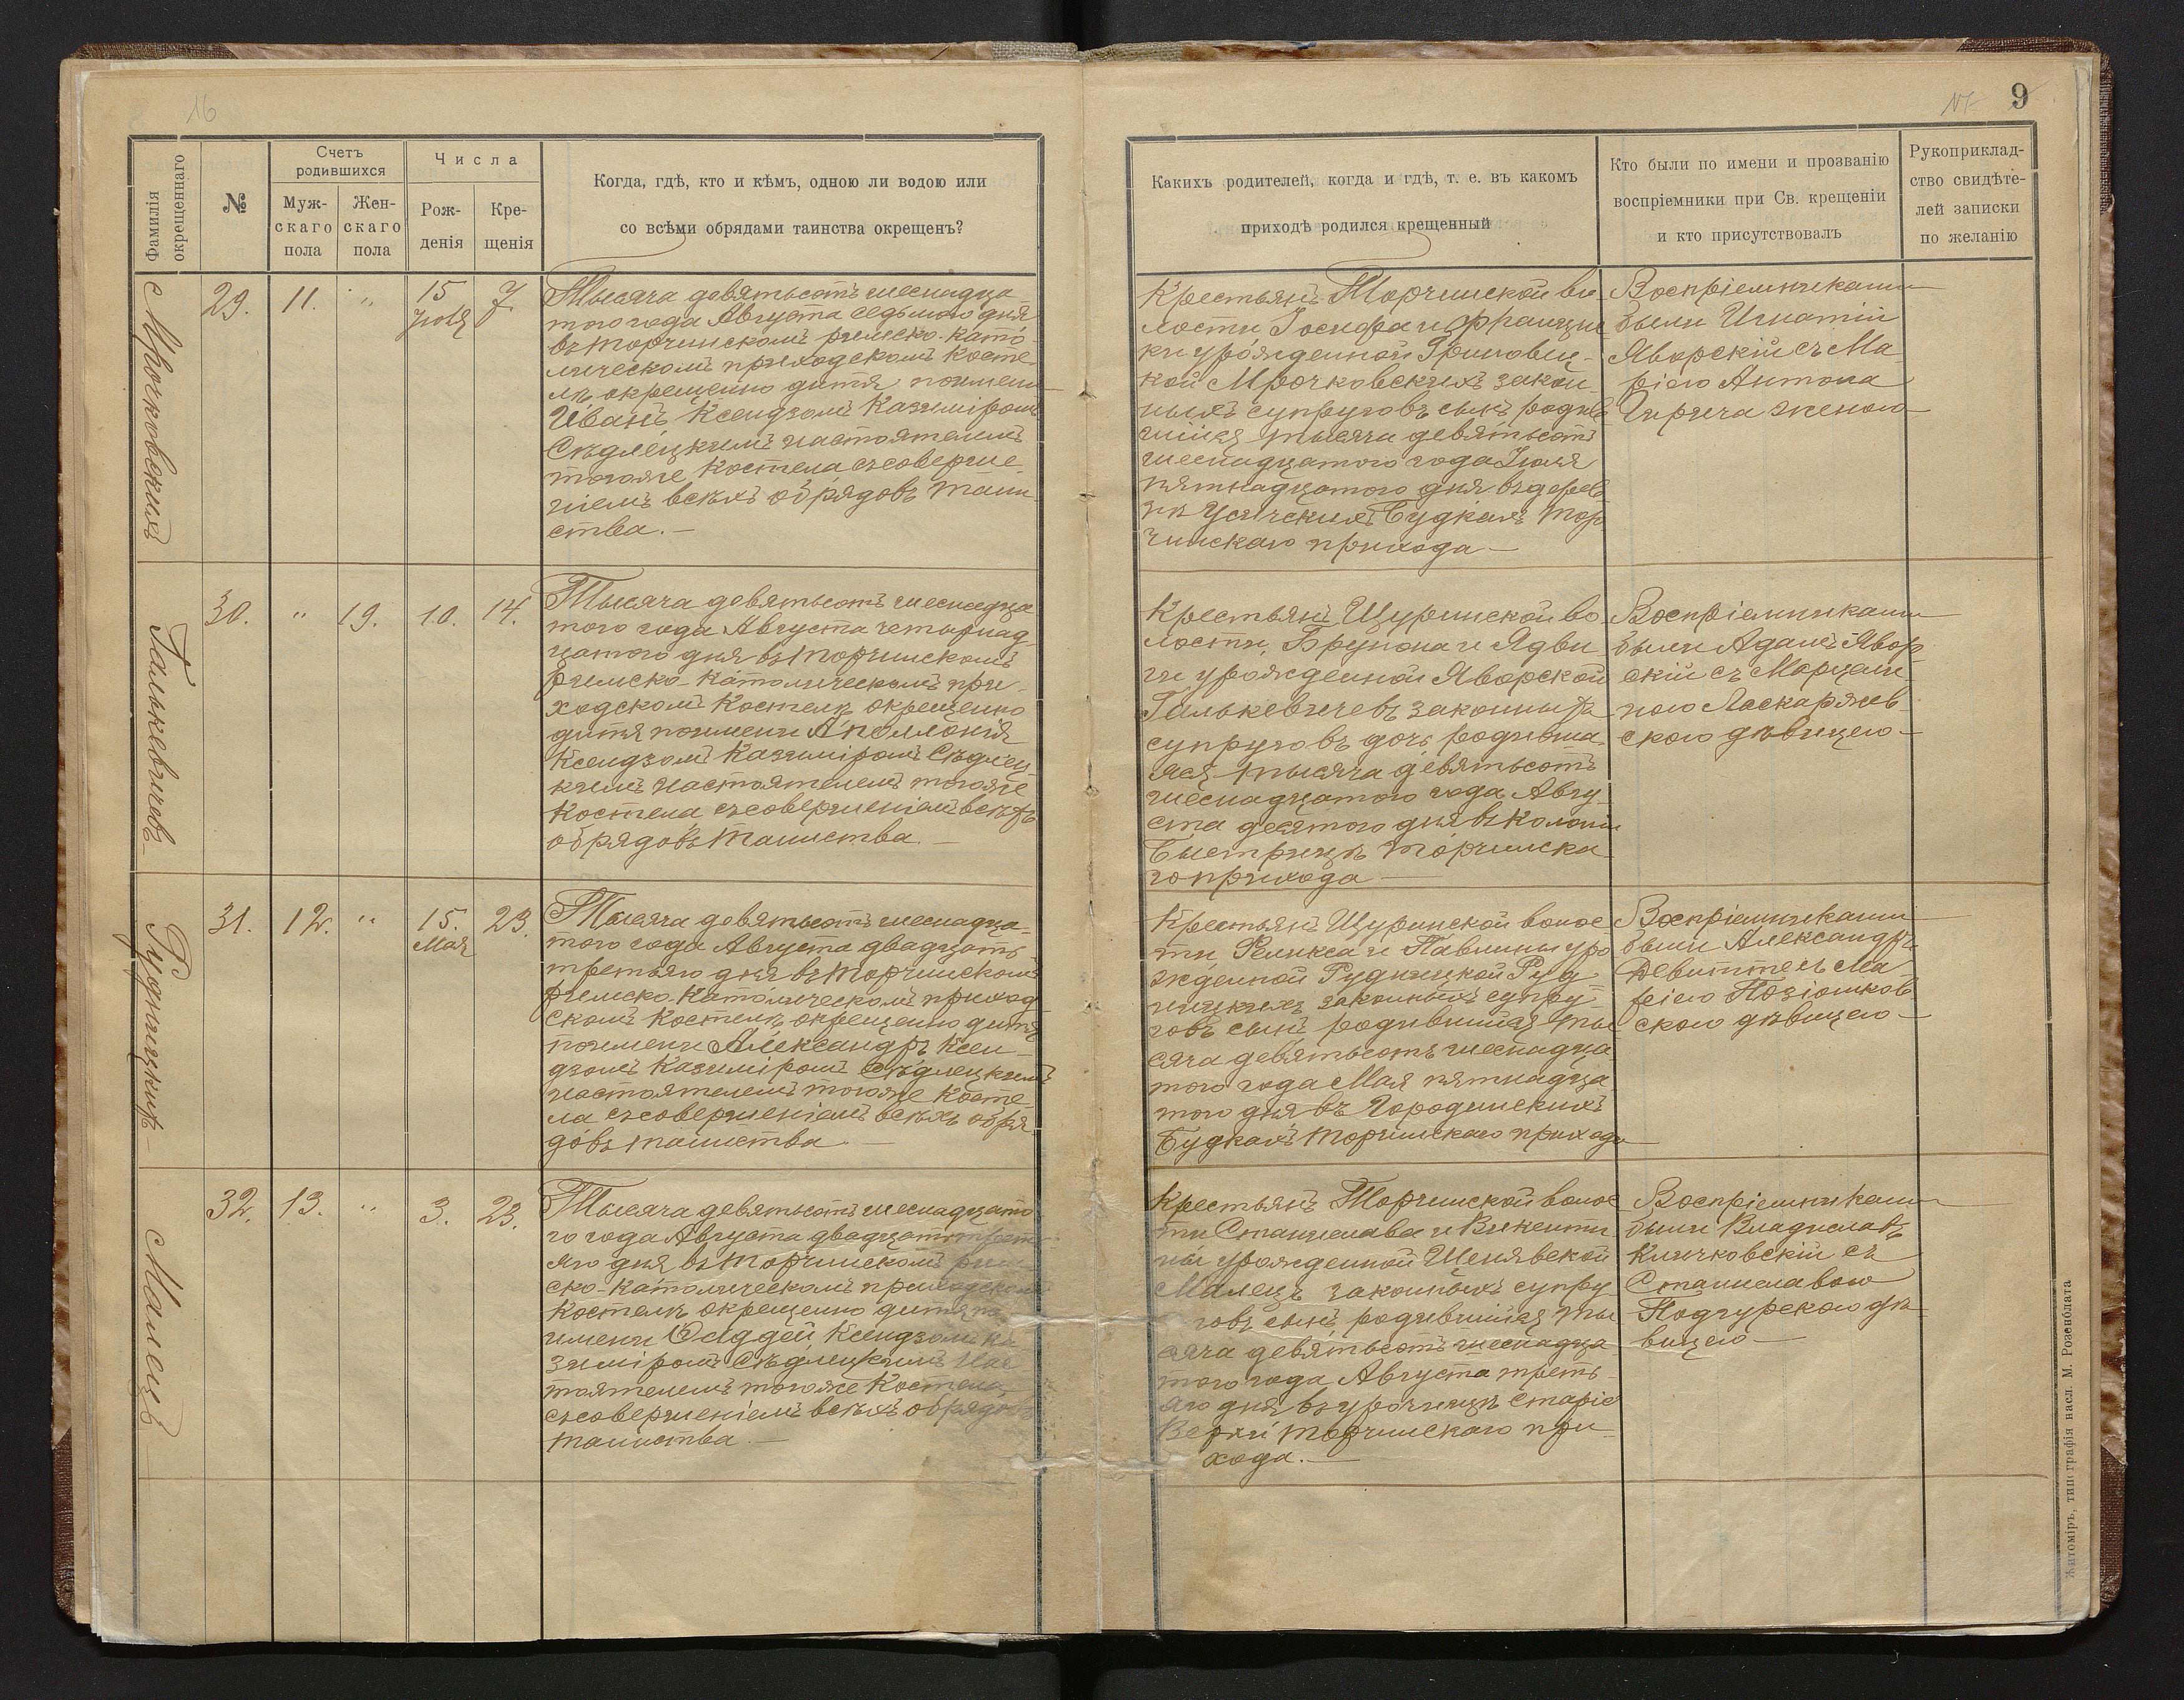 16
17
9
Фамилія окрещеннаго
№
Счетъ родившихся
Муж-
скаго
пола
Жен-
скаго
пола
Числа
Рож-
денія
Кре-
щенія
Когда, гдѣ, кто и кѣмъ, одною ли водою или
со всѣми обрядами таинства окрещенъ?
Какихъ родителей, когда и гдѣ, т. е. въ какомъ
приходѣ родился крещенный
Кто были по имени и прозванію
воспріемники при Св. крещеніи
и кто присутствовалъ
Рукоприклад-
ство свидѣте-
лей записки
по желанію
Мрочковскихъ
29.
11.
"
15
Іюля
7
Тысяча девятьсотъ шеснадца
того года Августа седьмого дня
въ Торчинскомъ римско-като-
лическомъ приходскомъ косте-
лѣ окрещено дитя по имени
Иванъ Ксендзомъ Казиміромъ
Сѣдлецкимъ настоятелемъ
тогоже Костела съ соверше-
ніемъ всѣхъ обрядовъ таин
ства.—
Крестьянъ Торчинской во-
лости Іосифа и Францис
ки урожденной Григовец-
кой Мрочковскихъ закон
ныхъ супруговъ сынъ родив
шійся тысяча девятьсотъ
шеснадцатого года Іюля
пятнадцатого дня въ дерев
нѣ Усичскихъ Будкахъ Тор
чинскаго прихода—
Воспріемниками
были Игнатій
Яворскій съ Ма
ріею Антона
Гирича женою—
Галькевичевъ
30.
"
19.
10.
14.
Тысяча девятьсотъ шеснадца
того года Августа четырнад-
цатого дня въ Торчинскомъ
римско-католическомъ при-
ходскомъ Костелѣ окрещено
дитя по имени Аполлонія
Ксендзомъ Казиміромъ Сѣдлец
кимъ настоятелемъ тогоже
Костела съ совершеніемъ всѣхъ
обрядовъ таинства.—
Крестьянъ Щуринской во
лости, Брунона и Ядви
ги урожденной Яворской
Галькевичевъ законныхъ
супруговъ дочь родивша-
яся тысяча девятьсотъ
шеснадцатого года Авгу-
ста десятого дня въ колоніи
Быстрицѣ Торчинска-
го прихода—
Воспріемниками
были Адамъ Явор-
скій съ Марцели-
ною Ласкаржев-
скою дѣвицею—
Рудницкихъ
31.
12.
"
15.
Мая
23.
Тысяча девятьсотъ шеснадца-
того года Августа двадцать
третьяго дня въ Торчинскомъ
римско-католическомъ приход
скомъ Костелѣ окрещено дитя
по имени Александръ Ксен-
дзомъ Казиміромъ Сѣдлецкимъ
настоятелемъ тогоже Косте-
ла съ совершеніемъ всѣхъ обря
довъ таинства.—
Крестьянъ Щуринской волос
ти, Феликса и Павлины уро
жденной Рудницкой Руд-
ницкихъ законныхъ супру-
говъ сынъ родившійся ты
сяча девятьсотъ шеснадца
того года Мая пятнадца
того дня въ Городинскихъ
Будкахъ Торчинскаго прихода—
Воспріемниками
были Александръ
Девиттъ съ Ма
ріею Позіомков
скою дѣвицею—
Малецъ
32.
13.
"
3.
23.
Тысяча девятьсотъ шеснадцато
го года Августа двадцать треть
яго дня въ Торчинскомъ рим-
ско-католическомъ приходскомъ
Костелѣ окрещено дитя по
имени Фаддей Ксендзомъ Ка
зиміромъ Сѣдлецкимъ Нас
тоятелемъ тогоже Костела
съ совершеніемъ всѣхъ обрядовъ
таинства.—
Крестьянъ Торчинской волос
ти Станислава и Викенти
ны урожденной Шенявской
Малецъ законныхъ супру-
говъ сынъ родившійся ты
сяча девятьсотъ шеснадца
того года Августа треть-
яго дня въ урочищѣ Старіе
Верхи Торчинскаго при-
хода.—
Воспріемниками
были Владиславъ
Кличковскій съ
Станиславою
Подгурскою дѣ-
вицею—
Житоміръ, типографія насл. М. Розенблата